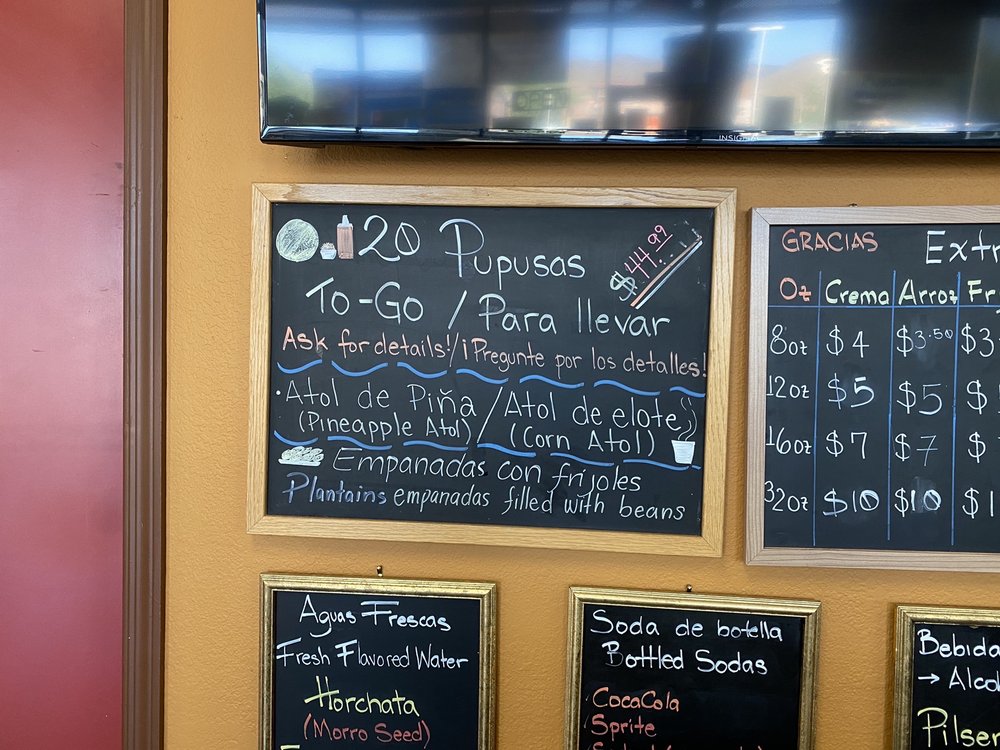 INSIGNIA
20 Pupusas
$44.99
To-Go / Para llevar
Ask for details!/¡Pregunte por los detalles!
·Atol de Piña / Atol de elote
(Pineapple Atol) (Corn Atol)
Empanadas con frijoles
Plantains empanadas filled with beans
GRACIAS
Oz Crema Arroz
8oz $4 $3.50 $3
12oz $5 $5
16oz $7 $7
32oz $10 $10
Aguas Frescas
Fresh Flavored Water
Horchata
(Morro Seed)
Soda de botella
Bottled Sodas
CocaCola
Sprite
→